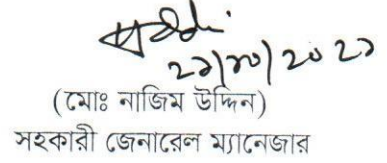 ২১/১০/২০২১
(মোঃ নাজিম উদ্দিন)
সহকারী জেনারেল ম্যানেজার